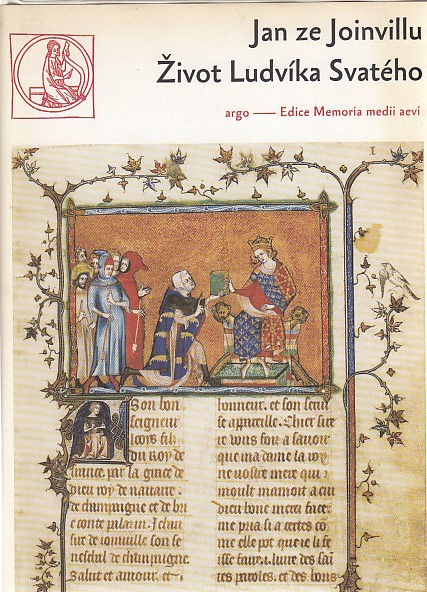 Jan ze Joinvillu
Život Ludvíka Svatého
argo — Edice Memoria medii aevi
I
Son bon
seigneur
looys filz
du roy de
france, par la grace de
dieu roy de nauarre.
de champaigne et de brie
conte palazin. Jehan
sire de ioinuille son se
neschal de champaigne.
Salut et amour. et
honneur. et son seruise
apareille. Chier sire
ie vous foiz a sauoir
que ma dame la roy
ne vostre mere qui
moult mamoit a cui
dieu bone merci face.
me pria si a certes co
me elle pot que ie li fe
isse faire .i. liure des sain
tes paroles. et des bons